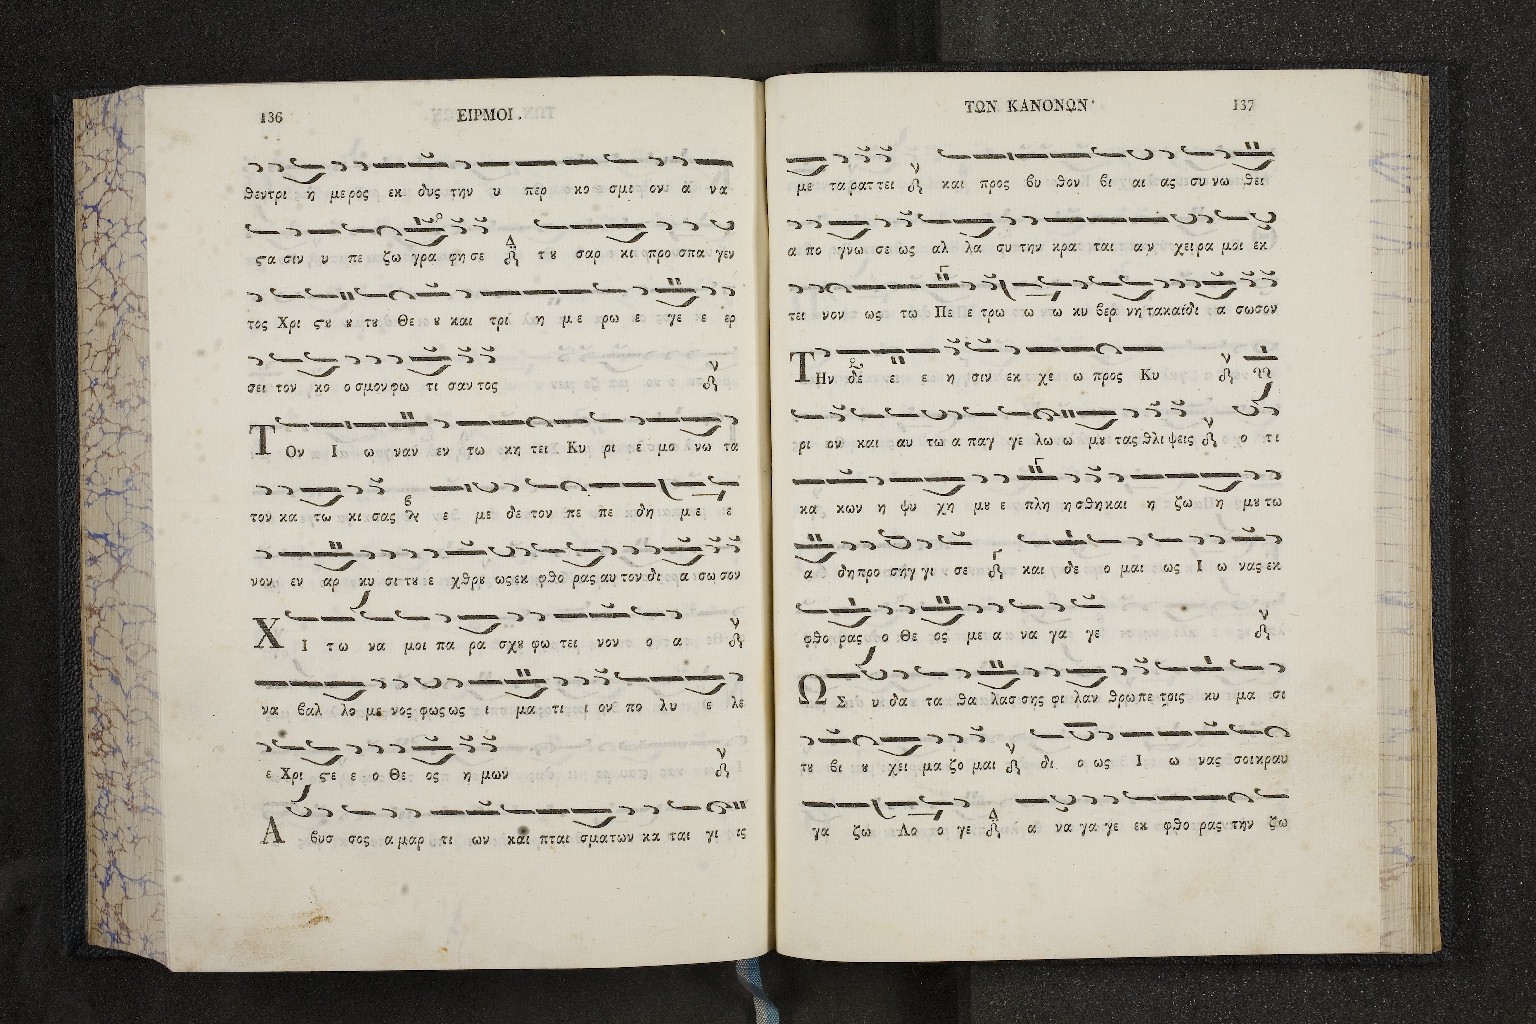 136
ΕΙΡΜΟΙ.
θεντρι η μερος εκ δυς την υ περ κο σμι ον α να
ϛα σιν υ πε ζω γρα φη σε τȣ σαρ κι προ σπα γεν
τος Χρι ϛȣ ȣ τȣ Θε ȣ και τρι η με ρω ε γε ε ερ
σει τον κο ο σμον φω τι σαν τος
ΤΟν Ι ω ναν εν τω κη τει Κυ ρι ε μο νω τα
τον κα τω κι σας ε με δε τον πε πε δη με ε
νον εν αρ κυ σι τȣ ε χθρȣ ως εκ φθο ρας αυ τον δι α σω σον
ΧΙ τω να μοι πα ρα σχȣ φω τει νον ο α
να βαλ λο με νος φως ως ι μα τι ι ον πο λυ ε λε
ε Χρι ϛε ε ο Θε ος η μων
Αβυσ σος α μαρ τι ων και πται σμα των κα ται γι ις
ΤΩΝ ΚΑΝΟΝΩΝ·
137
με τα ρατ τει και προς βυ θον βι αι ας συ νω θει
α πο γνω σε ως αλ λα συ την κρα ται αν χει ρα μοι εκ
τει νον ως τω Πε ε τρω ω ω κυ βερ νη τα και δι α σωσον
ΤΗν δε ε ε η σιν εκ χε ω προς Κυ
ρι ον και αυ τω α παγ γε λω ω μȣ τας θλι ψεις ο τι
κα κων η ψυ χη μȣ ε πλη η σθη και η ζω η μȣ τω
α δη προ σηγ γι σε και δε ο μαι ως Ι ω νας εκ
φθο ρας ο Θε ος με α να γα γε
ΩΣ υ δα τα θα λασ σης φι λαν θρω πε τοις κυ μα σι
τȣ βι ȣ χει μα ζο μαι δι ο ως Ι ω νας σοι κραυ
γα ζω Λο ο γε α να γα γε εκ φθο ρας την ζω